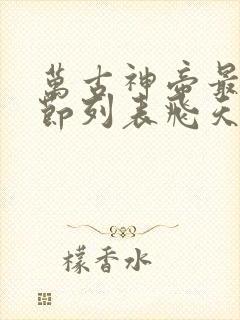 萬古神帝最
節列表飛天
檬香水